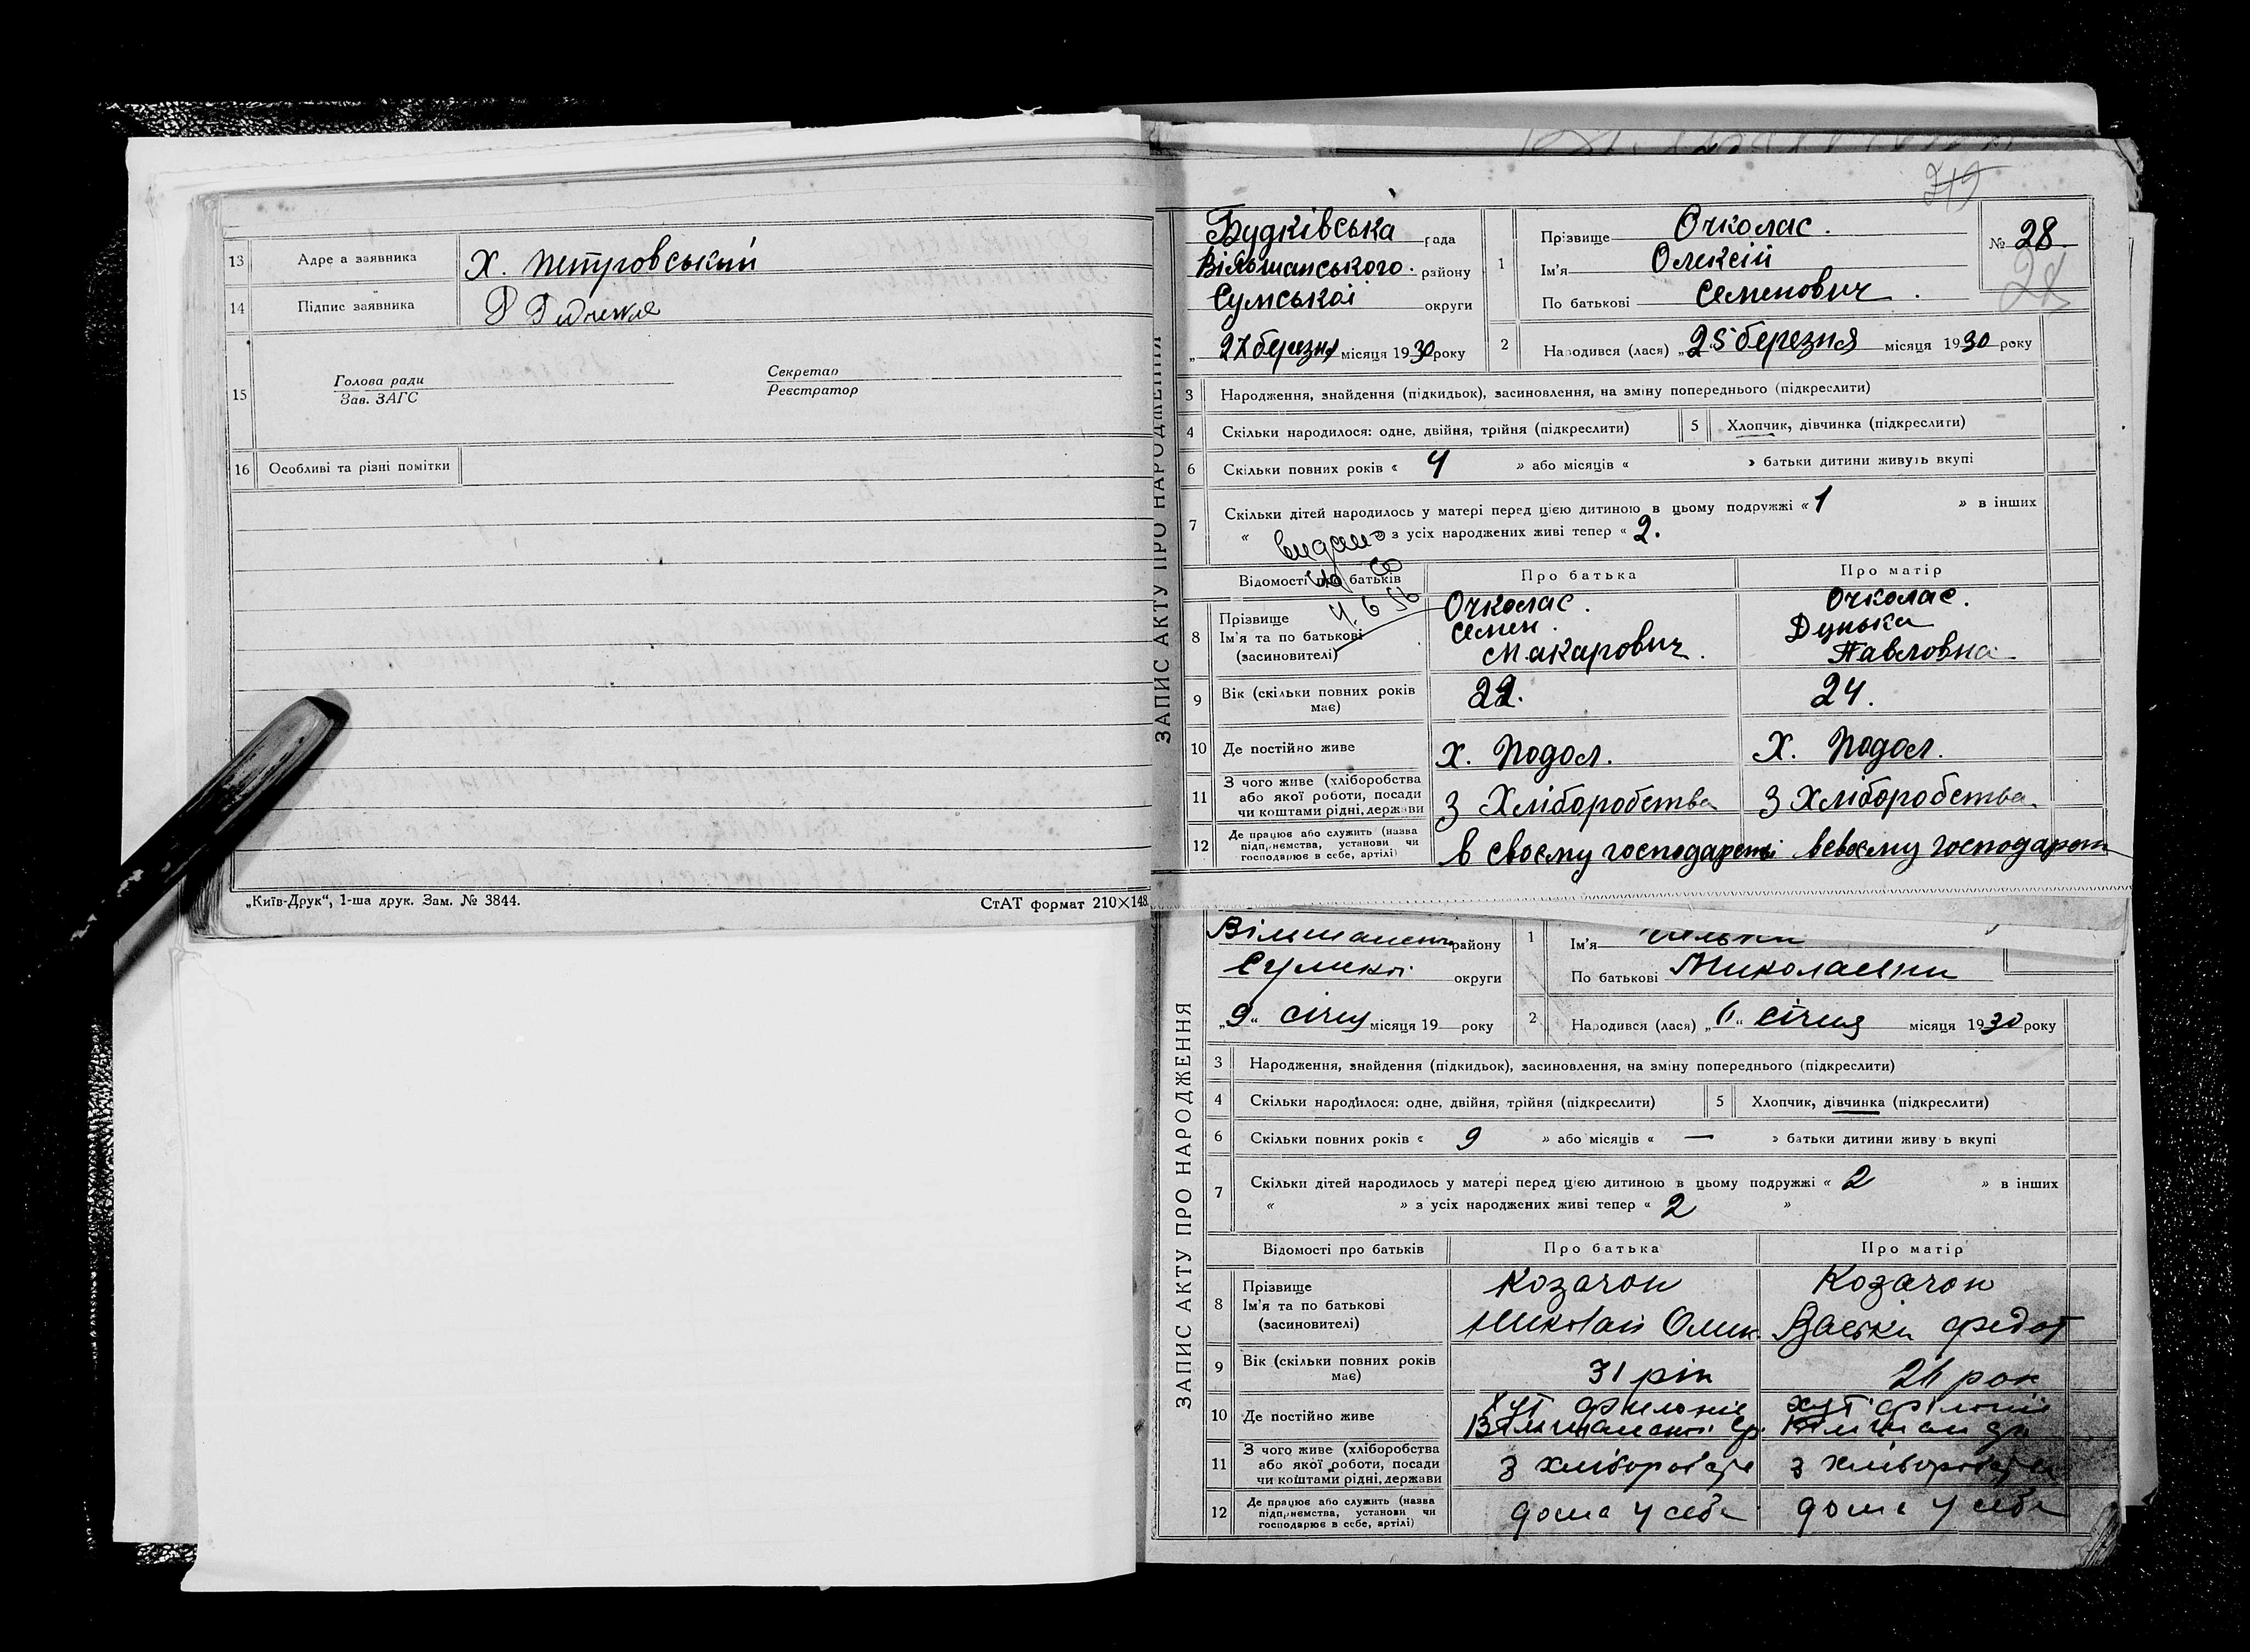 13 Адре а заявника Х. Петровський
14 Підпис заявника
15 Голова ради Секретар
Зав. ЗАГС Реєстратор
16 Особливі та різні помітки
„Київ-Друк“, 1-ша друк. Зам. № 3844. СтАТ формат 210×148
ЗАПИС АКТУ ПРО НАРОДЖЕННЯ
719
Будківська рада
Вільшанського району
Сумської округи
„27 березня місяця 1930 року
1 Прізвище Очколас.
Ім'я Олексій
По батькові Семенович.
№ 28.
28
2 Народився (лася) „25 березня місяця 1930 року
3 Народження, знайдення (підкидьок), засиновлення, на зміну попереднього (підкреслити)
4 Скільки народилося: одне, двійня, трійня (підкреслити) 5 Хлопчик, дівчинка (підкреслити)
6 Скільки повних років « 4 » або місяців « » батьки дитини живуть вкупі
7 Скільки дітей народилось у матері перед цією дитиною в цьому подружжі « 1 » в інших
« » з усіх народжених живі тепер « 2.
видано
4.6.56
Відомості про батьків Про батька Про матір
8 Прізвище Очколас. Очколас.
Ім'я та по батькові Семен. Дунька
(засновителі) Макарович. Павловна
9 Вік (скільки повних років має) 22. 24.
10 Де постійно живе х. Подол. Х. Подол.
11 З чого живе (хліборобства або якої роботи, посади чи коштами рідні, держави З Хліборобства З Хліборобства
12 Де працює або служить (назва підприємства, установи чи господарює в себе, артілі) в своєму господарстві в своєму господарст
ЗАПИС АКТУ ПРО НАРОДЖЕННЯ
району
округи
„9“ січня місяця 19 року
1 Ім'я
По батькові Миколаевни
2 Народився (лася) „ “ січня місяця 1930 року
3 Народження, знайдення (підкидьок), засиновлення, на зміну попереднього (підкреслити)
4 Скільки народилося: одне, двійня, трійня (підкреслити) 5 Хлопчик, дівчинка (підкреслити)
6 Скільки повних років « 9 » або місяців « — » батьки дитини живу ь вкупі
7 Скільки дітей народилось у матері перед цією дитиною в цьому подружжі « 2 » в інших
« » з усіх народжених живі тепер « 2 »
Відомості про батьків Про батька Про матір
8 Прізвище Козачок Козачок
Ім'я та по батькові Николай Олик. Васьки Федот
(засиновителі)
9 Вік (скільки повних років має) 31 рік 26 рок
10 Де постійно живе
11 З чого живе (хліборобства або якої роботи, посади чи коштами рідні, держави
12 Де працює або служить (назва підприємства, установи чи господарює в себе, артілі) дома у себе дома у себе